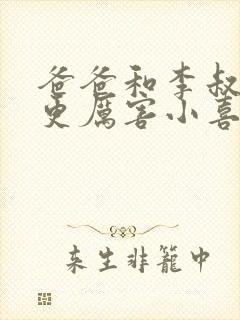 爸爸和李叔
更厲害小喜
来生非籠中